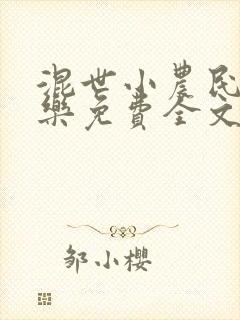 混世小农民
乐免费全文
邹小樱